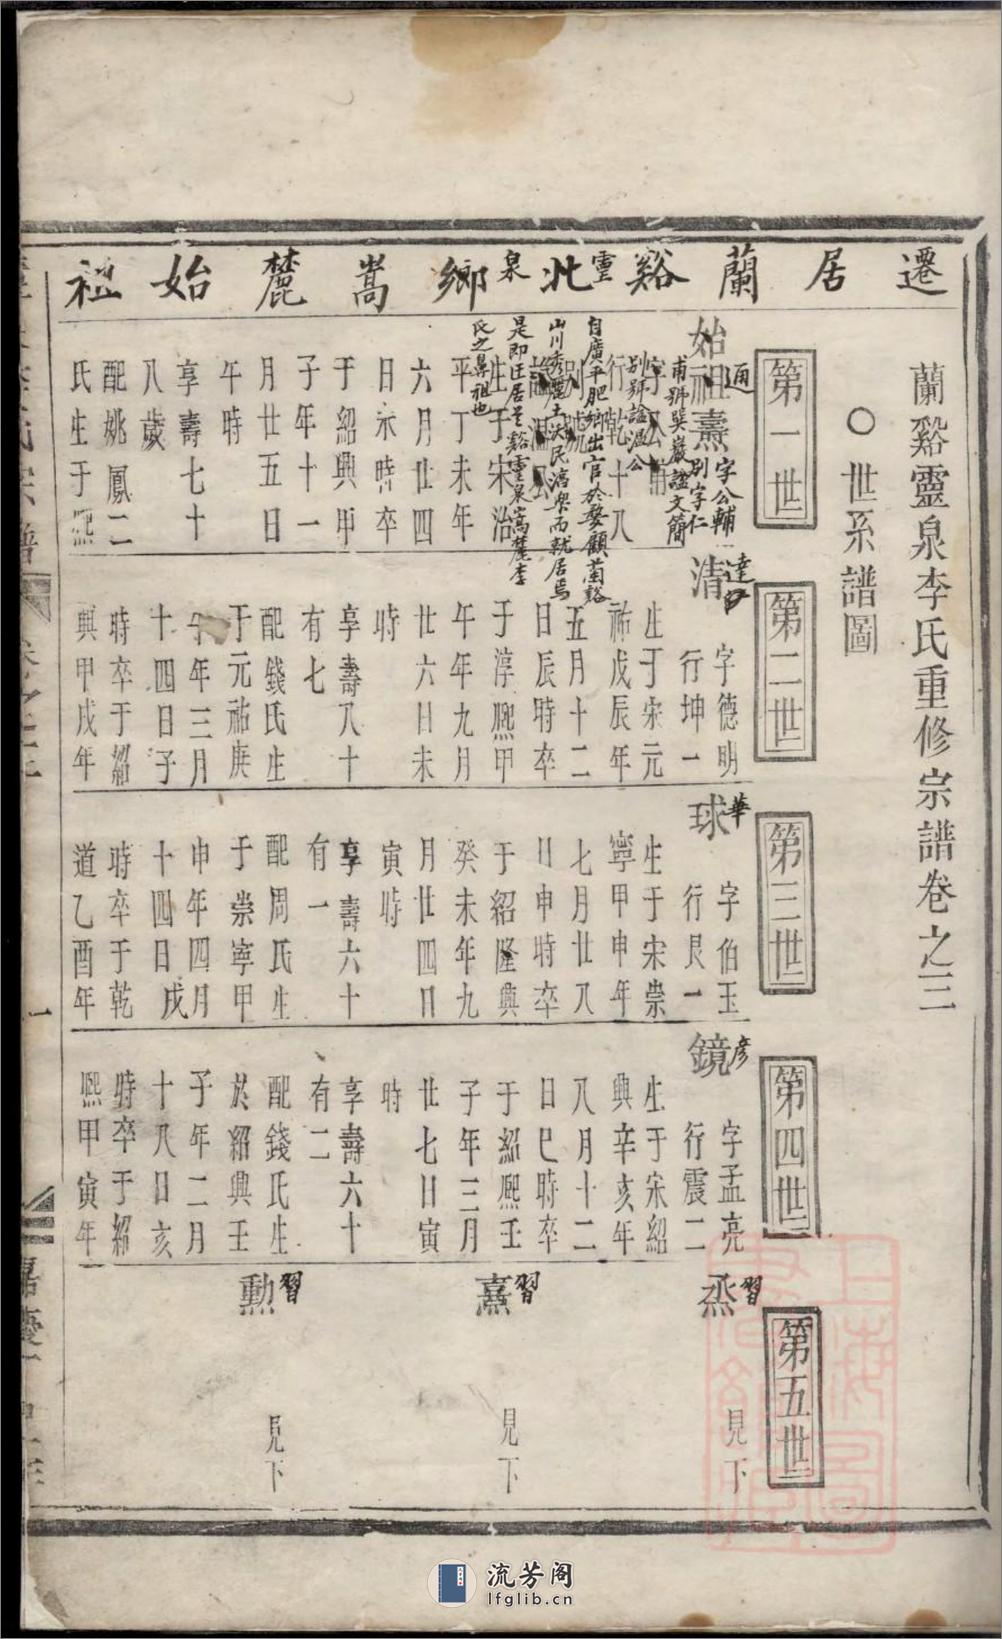 蘭谿靈泉李氏重修宗譜卷之三
○世系譜圖
遷居蘭谿靈泉北鄉嵩麓始祖
第一世
始祖熹
通
字公輔
別字仁
甫號巽巖諡文簡
別號諡溫公
行乾十八
自廣平肥鄉出官於婺顧蘭谿
山川秀麗土沃民淳舉而就居焉
是即迁居蘭谿靈泉嵩麓李
氏之鼻祖也
生于宋治
平丁未年
六月廿四
日永時卒
于紹興甲
子年十一
月廿五日
午時
享壽七十
八歲
配姚鳳二
氏生于熙
第二世
清
達
字德明
行坤一
生于宋元
祐戊辰年
五月十二
日辰時卒
于淳熙甲
午年九月
廿六日未
時
享壽八十
有七
配錢氏生
于元祐庚
午年三月
十四日子
時卒于紹
興甲戌年
第三世
球
華
字伯玉
行艮一
生于宋崇
寧甲申年
七月廿八
日申時卒
于紹隆興
癸未年九
月廿四日
寅時
享壽六十
有一
配周氏生
于崇寧甲
申年四月
十四日戌
時卒于乾
道乙酉年
第四世
鏡
彥
字孟亮
行震二
生于宋紹
興辛亥年
八月十二
日巳時卒
于紹熙壬
子年三月
廿七日寅
時
享壽六十
有二
配錢氏生
於紹興壬
子年二月
十八日亥
時卒于紹
熙甲寅年
第五世
烝
習
見下
熹
習
見下
勳
習
見下
一
流芳阁
lfglib.cn